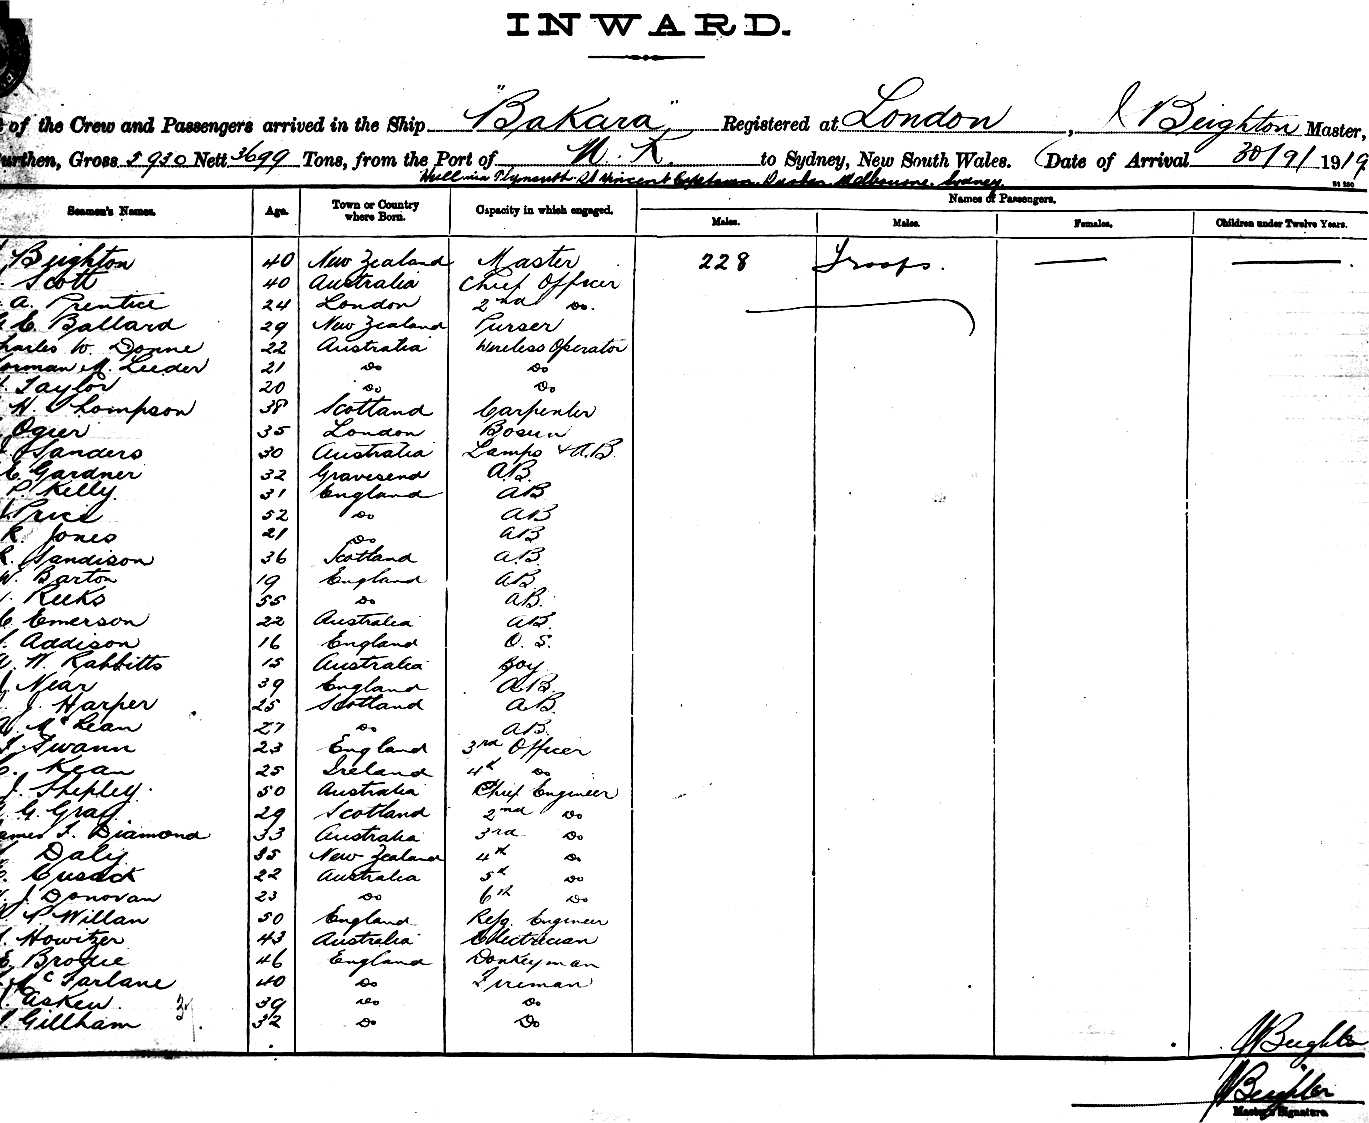 INWARD.
of the Crew and Passengers arrived in the Ship "Bakara", Registered at London, J Beighton Master,
Burthen, Gross 5930 Nett 3699 Tons, from the Port of U. K. to Sydney, New South Wales. (Date of Arrival 30/9/1919
Hull via Plymouth St Vincent Capetown Durban Melbourne. Sydney.
Seamen's Names. Age. Town or Country where Born. Capacity in which engaged. Names of Passengers.
Males. Males. Females. Children under Twelve Years.
Beighton 40 New Zealand Master 228 Troops. — —
Scott 40 Australia Chief Officer
A. Prentice 24 London 2nd Do.
E. Ballard 29 New Zealand Purser
Charles W. Donne 22 Australia Wireless Operator
Norman M. Leeder 21 Do Do
Taylor 20 Do Do
H. Thompson 38 Scotland Carpenter
Ogier 35 London Bosun
Sanders 30 Australia Lamps & A.B.
E. Gardner 32 Gravesend A.B.
P. Kelly 31 England AB
Price 52 Do AB
R. Jones 21 Do AB
R. Sandison 36 Scotland A.B.
W. Barton 19 England AB
Reeks 55 Do AB.
C. Emerson 22 Australia AB.
Addison 16 England O. S.
W. Rabbitts 15 Australia Boy
Near 39 England A.B.
J. Harper 25 Scotland A.B.
McLean 27 Do AB.
Swann 23 England 3rd Officer
Kean 25 Ireland 4th Do
J. Shepley 50 Australia Chief Engineer
G. Gray 29 Scotland 2nd Do
James F. Diamond 33 Australia 3rd Do
Daly 35 New Zealand 4th Do
Cusack 22 Australia 5th Do
J. Donovan 23 Do 6th Do
P. Willan 50 England Refg. Engineer
Howitzer 43 Australia Electrician
E. Brodie 46 England Donkeyman
McFarlane 40 Do Fireman
Askew 39 Do Do
Gillham 32 Do Do
J Beighton
J Beighton
Master's Signature.